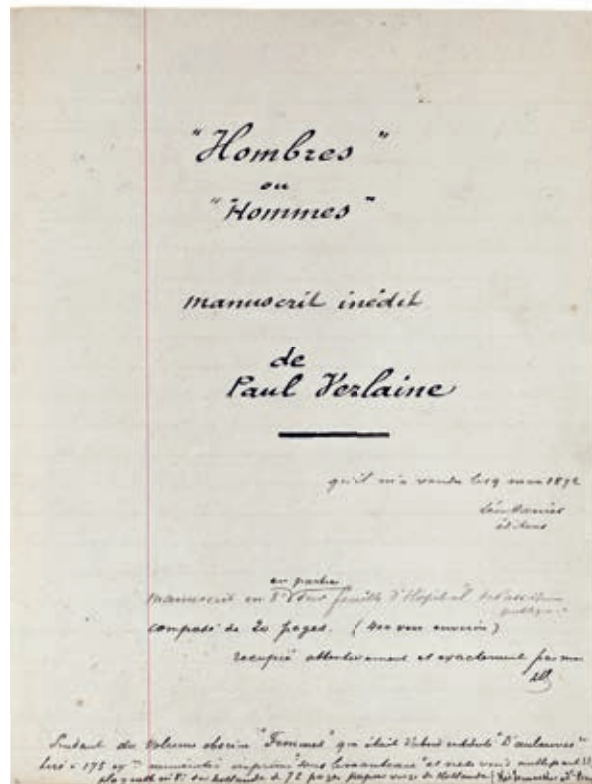 "Hombres"
ou
"Hommes"
manuscrit inédit
de
Paul Verlaine
qu'il m'a vendu le 19 mai 1892
Léon Vanier
éditeur
en partie
manuscrit en 8° sur feuille d'Hopital
composé de 20 pages. (400 vers environ)
recopié attentivement et exactement par moi
Pendant du volume obscène "Femmes" qui était d'abord intitulé "D'aulcunes"
tiré à 175 ex numérotés imprimé sous le manteau et
in 8° sur hollande de 72 pages papier vergé de Hollande